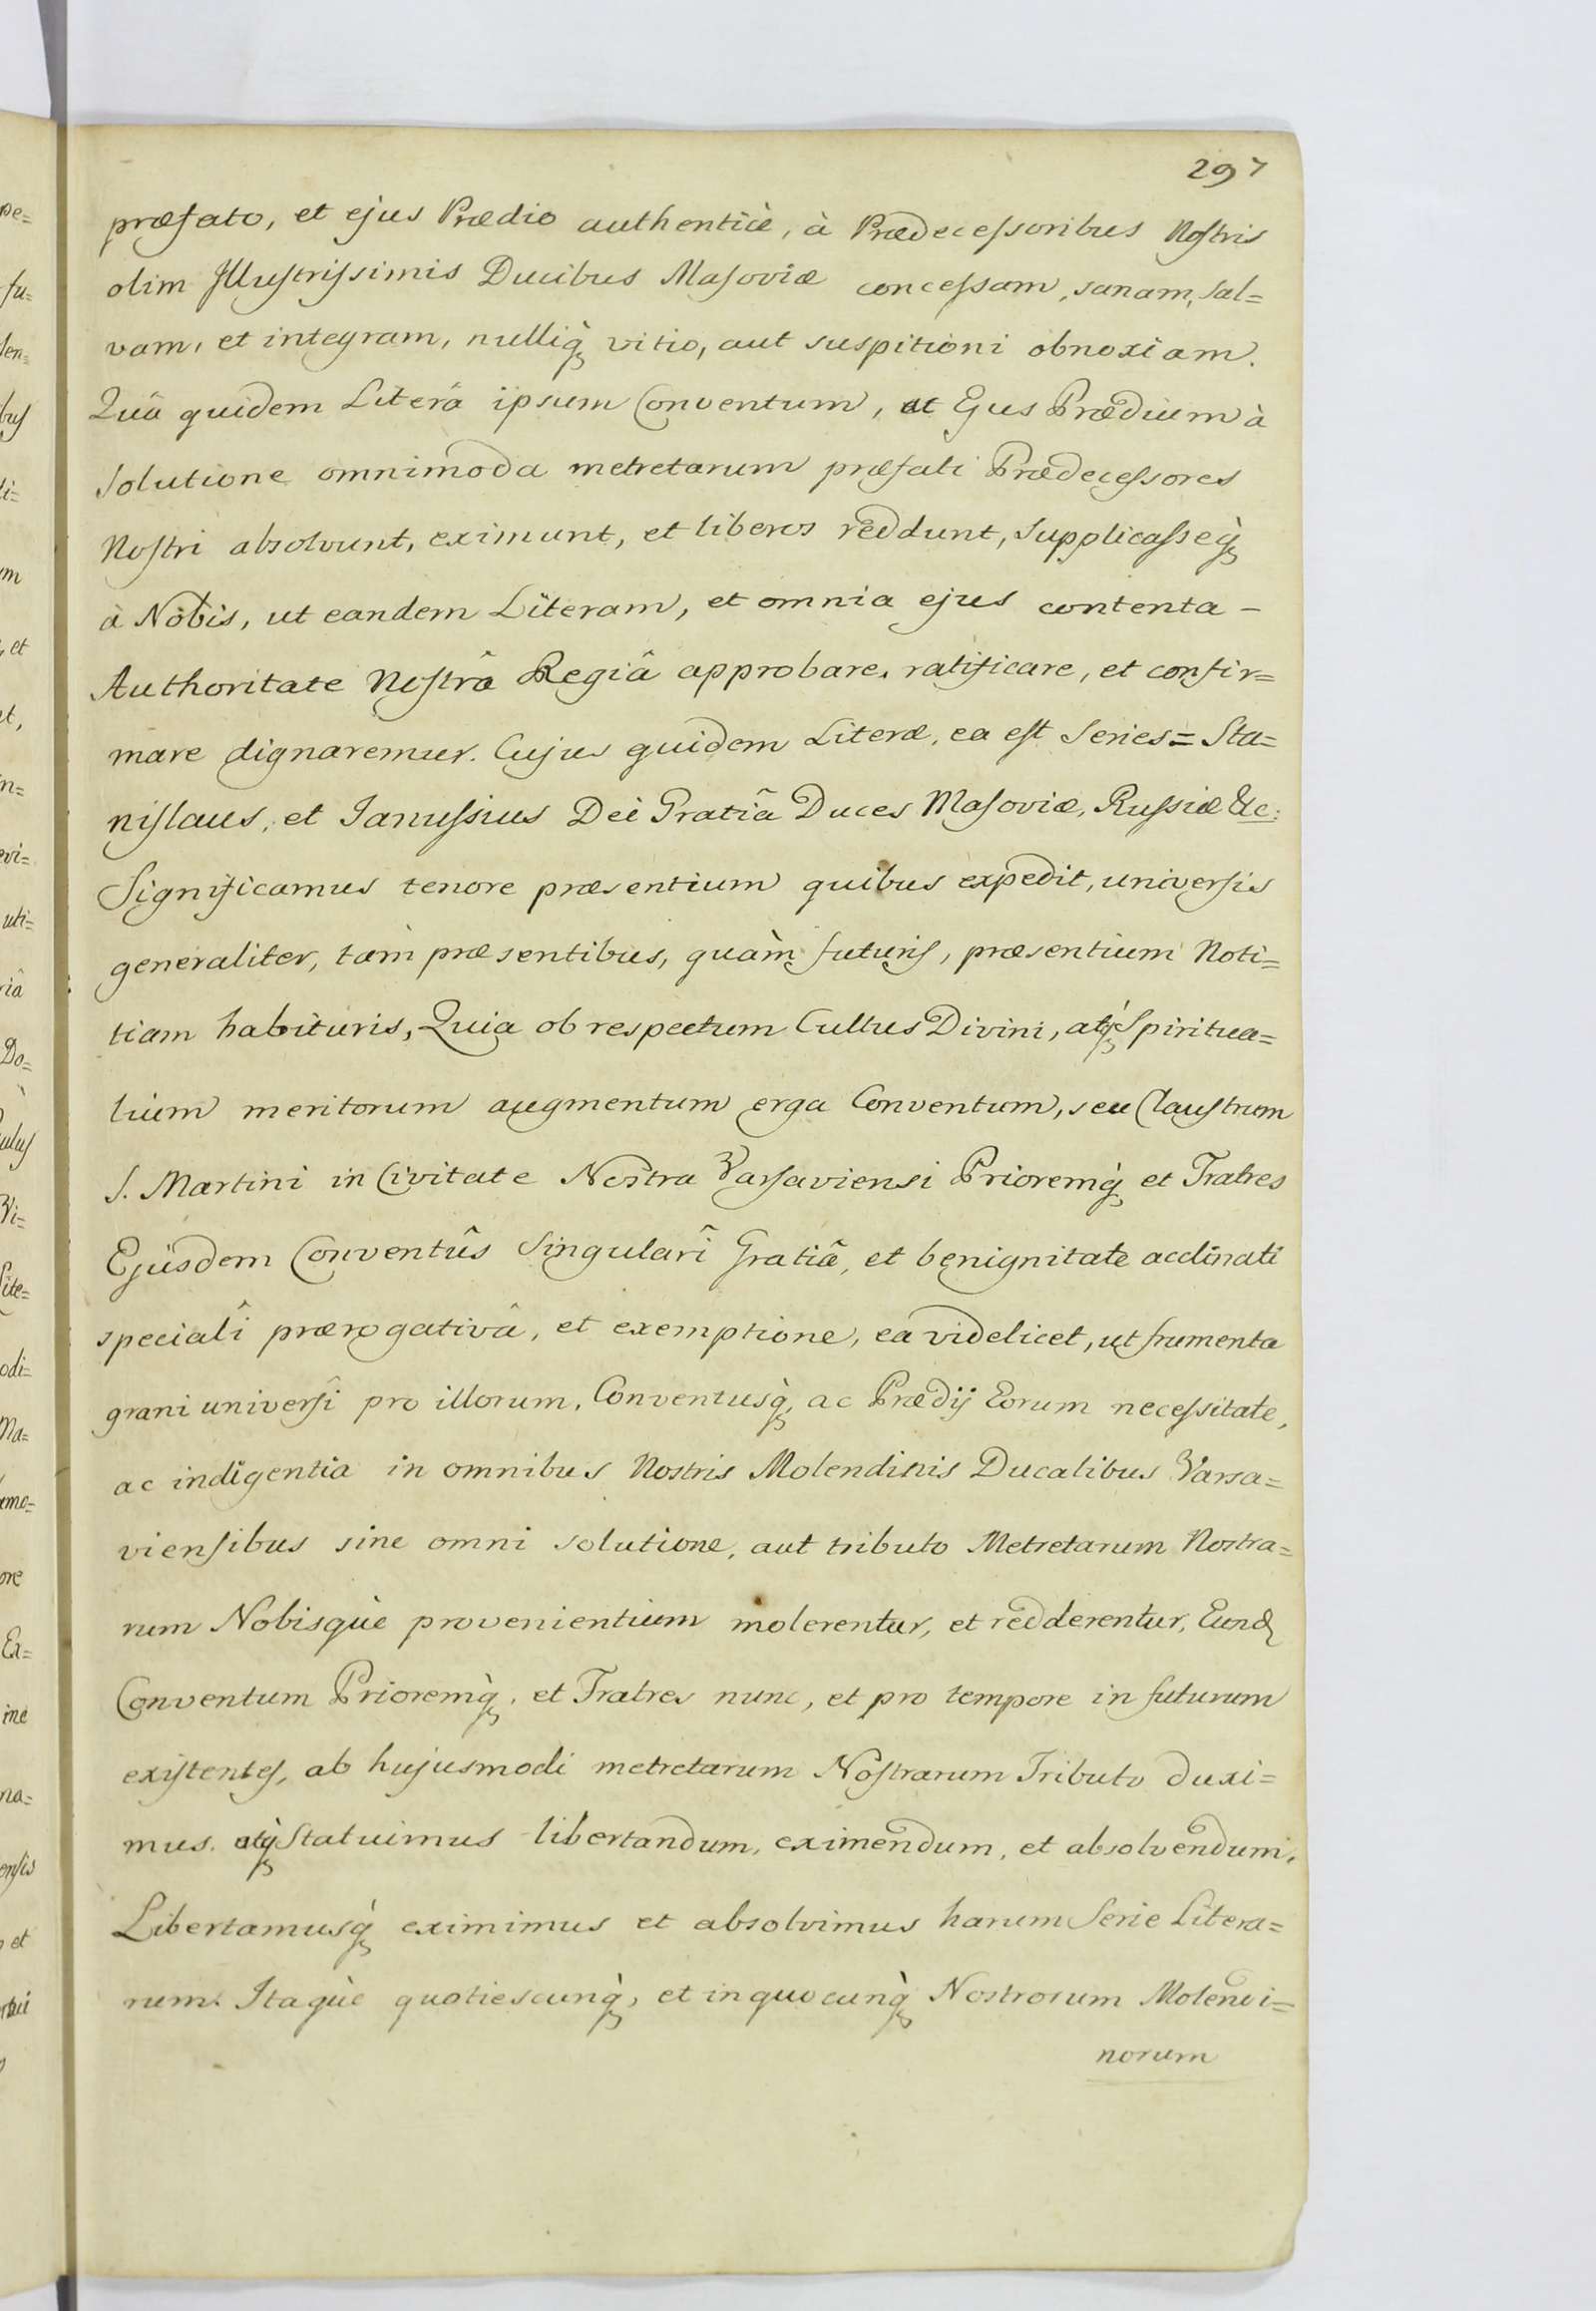 297
præfato, et ejus Prædio authenticè, à Prædecessoribus Nostris
olim Jllustrissimis Ducibus Masoviæ concessam, sanam, sal=
vam, et integram, nulliq̀ vitio, aut suspitioni obnoxiam.
Quâ quidem Literâ ipsum Conventum, et Ejus Prædium à
solutione omnimoda metretarum præfati Prædecessores
Nostri absolvunt, eximunt, et liberos reddunt, supplicasseq̀
à Nobis, ut eandem Literam, et omnia ejus contenta –
Authoritate Nostrâ Regiâ approbare, ratificare, et confir=
mare dignaremur. Cujus quidem Literæ, ea est Series= Sta=
nislaus, et Janussius Dei Gratiâ Duces Masoviæ, Russiæ &c:
Significamus tenore præsentium quibus expedit, universis
generaliter, tàm præsentibus, quàm futuris, præsentium Noti=
tiam habituris, Quia ob respectum Cultus Divini, atq́ Spiritua=
lium meritorum augmentum erga Conventum, seu Claustrum
S. Martini in Civitate Nostra Varsaviensi Prioremq̀ et Fratres
Ejusdem Conventûs Singularî Gratiâ, et benignitate acclinati
specialî prærogativâ, et exemptione, ea videlicet, ut frumenta
grani universi pro illorum, Conventusq̀, ac Prædij Eorum necessitate,
ac indigentia in omnibus Nostris Molendinis Ducalibus Varsa=
viensibus sine omni solutione, aut tributo Metretarum Nostra=
rum Nobisquè provenientium molerentur, et redderentur, Eund
Conventum Prioremq̀, et Fratres nunc, et pro tempore in futurum
existentes, ab hujusmodi metretarum Nostrarum Tributo duxi=
mus, atq̀ Statuimus libertandum, eximendum, et absolvendum,
Libertamusq̀ eximimus et absolvimus harum Serie Litera=
rum. Itaquè quotiescunq̀, et in quocunq̀ Nostrorum Molendi=
norum